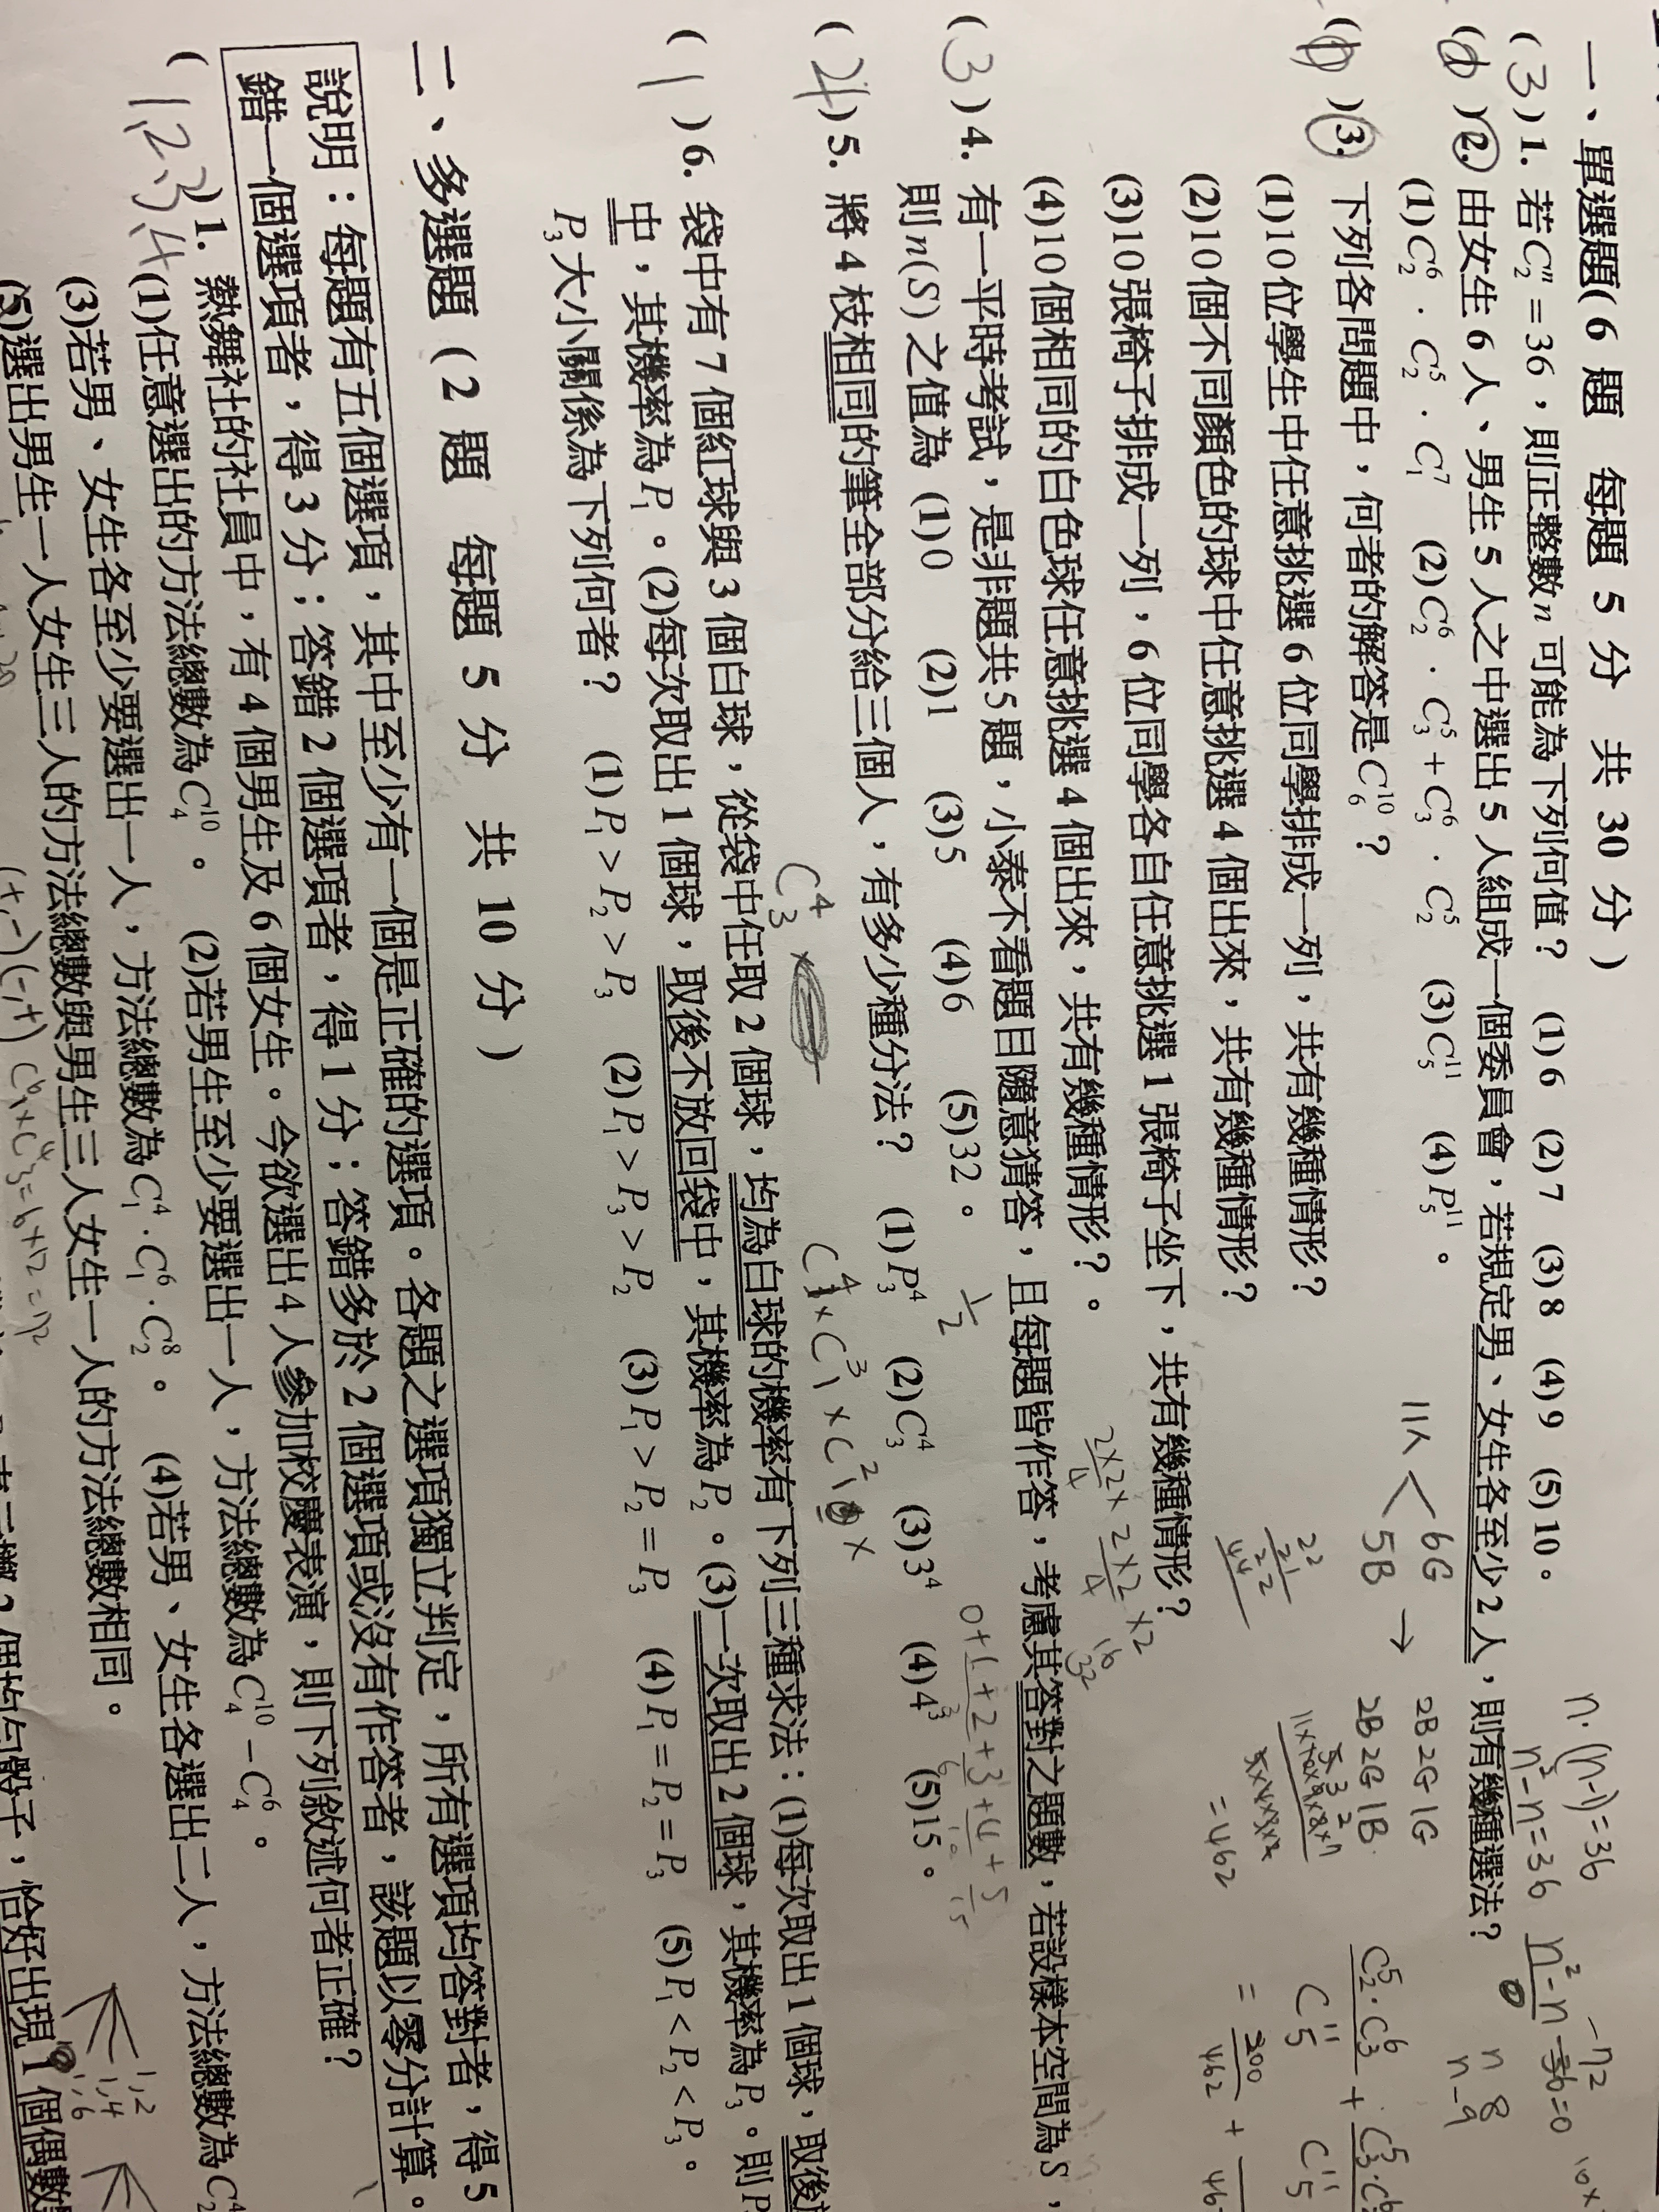 一、單選題(6 題 每題 5 分 共 30 分)
(3)1. 若C₂ⁿ=36,則正整數n可能為下列何值? (1)6 (2)7 (3)8 (4)9 (5)10。
( )2. 由女生6人、男生5人之中選出5人組成一個委員會,若規定男、女生各至少2人,則有幾種選法?
(1)C₂⁶·C₂⁵·C₁⁷ (2)C₂⁶·C₃⁵+C₃⁶·C₂⁵ (3)C₅¹¹ (4)P₅¹¹。
( )3. 下列各問題中,何者的解答是C₆¹⁰?
(1)10位學生中任意挑選6位同學排成一列,共有幾種情形?
(2)10個不同顏色的球中任意挑選4個出來,共有幾種情形?
(3)10張椅子排成一列,6位同學各自任意挑選1張椅子坐下,共有幾種情形?
(4)10個相同的白色球任意挑選4個出來,共有幾種情形?。
(3)4. 有一平時考試,是非題共5題,小泰不看題目隨意猜答,且每題皆作答,考慮其答對之題數,若設樣本空間為S,
則n(S)之值為 (1)0 (2)1 (3)5 (4)6 (5)32。
( )5. 將4枝相同的筆全部分給三個人,有多少種分法? (1)P₃⁴ (2)C₃⁴ (3)3⁴ (4)4³ (5)15。
(1)6. 袋中有7個紅球與3個白球,從袋中任取2個球,均為白球的機率有下列三種求法:(1)每次取出1個球,取後
中,其機率為P₁。(2)每次取出1個球,取後不放回袋中,其機率為P₂。(3)一次取出2個球,其機率為P₃。則P
P₃大小關係為下列何者? (1)P₁>P₂>P₃ (2)P₁>P₃>P₂ (3)P₁>P₂=P₃ (4)P₁=P₂=P₃ (5)P₁<P₂<P₃。
二、多選題(2 題 每題 5 分 共 10 分)
說明:每題有五個選項,其中至少有一個是正確的選項。各題之選項獨立判定,所有選項均答對者,得5
錯一個選項者,得3分;答錯2個選項者,得1分;答錯多於2個選項或沒有作答者,該題以零分計算。
(1,2,3,4)1. 熱舞社的社員中,有4個男生及6個女生。今欲選出4人參加校慶表演,則下列敘述何者正確?
(1)任意選出的方法總數為C₄¹⁰。 (2)若男生至少要選出一人,方法總數為C₄¹⁰−C₄⁶。
(3)若男、女生各至少要選出一人,方法總數為C₁⁴·C₁⁶·C₂⁸。 (4)若男、女生各選出二人,方法總數為C₂⁴
(5)選出男生一人女生三人的方法總數與男生三人女生一人的方法總數相同。
個均勻骰子,恰好出現1個偶數
n·(n-1)=36
n²-n=36
11人
6G
5B
2B2G1G
2B2G1B
=462
C₃⁴×
0+1+2+3+4+5